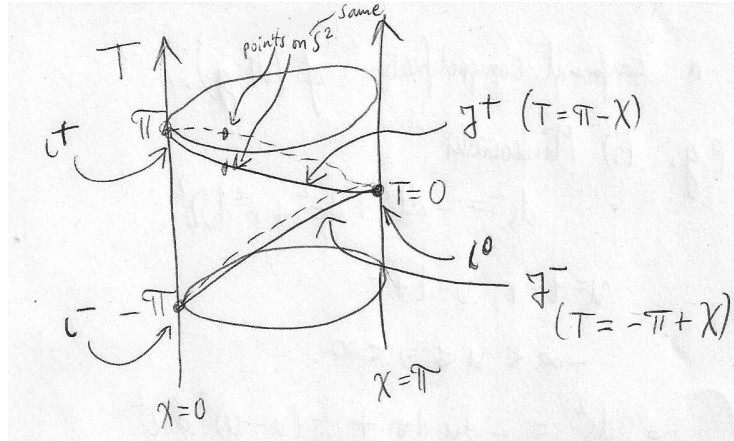 same
points on S²
T
π
i⁺
𝒥⁺ (T = π - χ)
T = 0
i⁰
i⁻ -π
𝒥⁻
(T = -π + χ)
χ = π
χ = 0